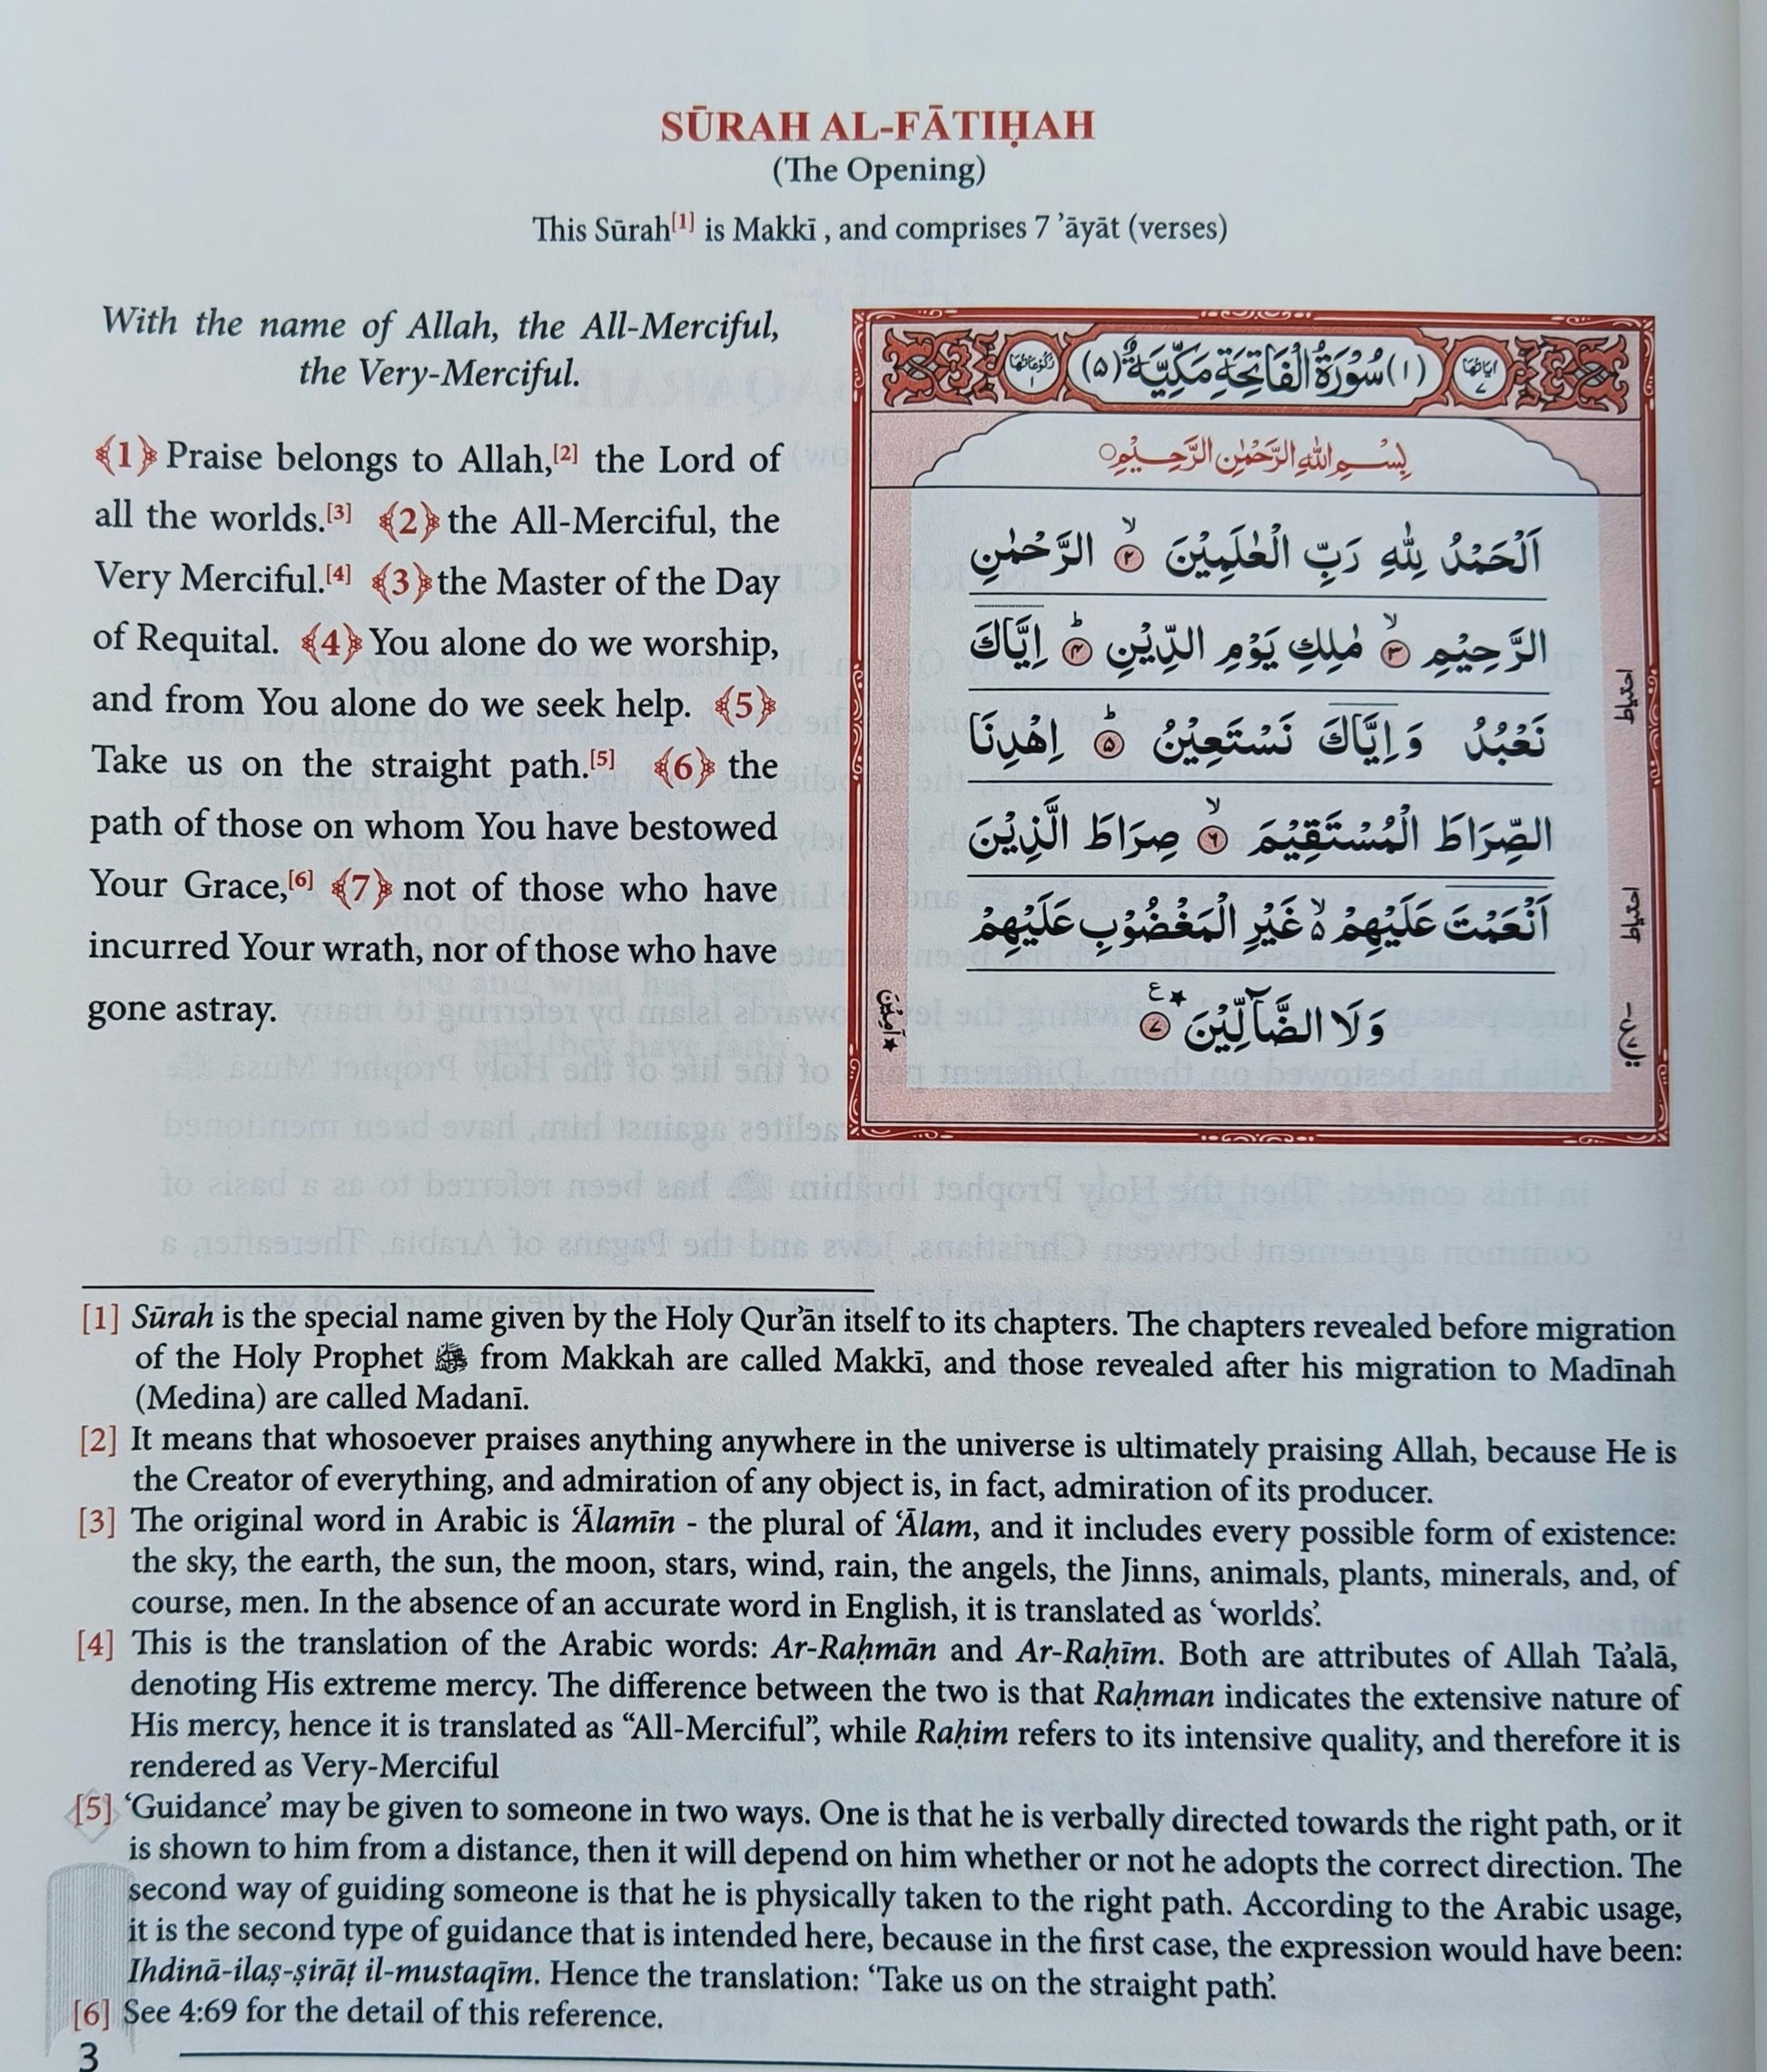 SŪRAH AL-FĀTIḤAH
(The Opening)
This Sūrah[1] is Makkī , and comprises 7 ’āyāt (verses)
With the name of Allah, the All-Merciful,
the Very-Merciful.
﴾1﴿ Praise belongs to Allah,[2] the Lord of
all the worlds.[3] ﴾2﴿ the All-Merciful, the
Very Merciful.[4] ﴾3﴿ the Master of the Day
of Requital. ﴾4﴿ You alone do we worship,
and from You alone do we seek help. ﴾5﴿
Take us on the straight path.[5] ﴾6﴿ the
path of those on whom You have bestowed
Your Grace,[6] ﴾7﴿ not of those who have
incurred Your wrath, nor of those who have
gone astray.
اٰيَاتُهَا ٧ (١) سُوْرَةُ الْفَاتِحَةِ مَكِّيَّةٌ (٥) رُكُوْعَاتُهَا ١
بِسْمِ اللهِ الرَّحْمٰنِ الرَّحِيْمِ
اَلْحَمْدُ لِلّٰهِ رَبِّ الْعٰلَمِيْنَ ۙ ٢ الرَّحْمٰنِ
الرَّحِيْمِ ۙ ٣ مٰلِكِ يَوْمِ الدِّيْنِ ؕ ٤ اِيَّاكَ
نَعْبُدُ وَ اِيَّاكَ نَسْتَعِيْنُ ؕ ٥ اِهْدِنَا
الصِّرَاطَ الْمُسْتَقِيْمَ ۙ ٦ صِرَاطَ الَّذِيْنَ
اَنْعَمْتَ عَلَيْهِمْ ۙ۬ غَيْرِ الْمَغْضُوْبِ عَلَيْهِمْ
وَلَا الضَّآلِّيْنَ ٧ ★ ع
احتیاط
احتیاط
★ اٰمِيْن
[1] Sūrah is the special name given by the Holy Qur’ān itself to its chapters. The chapters revealed before migration
of the Holy Prophet ﷺ from Makkah are called Makkī, and those revealed after his migration to Madīnah
(Medina) are called Madanī.
[2] It means that whosoever praises anything anywhere in the universe is ultimately praising Allah, because He is
the Creator of everything, and admiration of any object is, in fact, admiration of its producer.
[3] The original word in Arabic is ‘Ālamīn - the plural of ‘Ālam, and it includes every possible form of existence:
the sky, the earth, the sun, the moon, stars, wind, rain, the angels, the Jinns, animals, plants, minerals, and, of
course, men. In the absence of an accurate word in English, it is translated as ‘worlds’.
[4] This is the translation of the Arabic words: Ar-Raḥmān and Ar-Raḥīm. Both are attributes of Allah Ta’alā,
denoting His extreme mercy. The difference between the two is that Raḥman indicates the extensive nature of
His mercy, hence it is translated as “All-Merciful”, while Raḥim refers to its intensive quality, and therefore it is
rendered as Very-Merciful
[5] ‘Guidance’ may be given to someone in two ways. One is that he is verbally directed towards the right path, or it
is shown to him from a distance, then it will depend on him whether or not he adopts the correct direction. The
second way of guiding someone is that he is physically taken to the right path. According to the Arabic usage,
it is the second type of guidance that is intended here, because in the first case, the expression would have been:
Ihdinā-ilaṣ-ṣirāṭ il-mustaqīm. Hence the translation: ‘Take us on the straight path’.
[6] See 4:69 for the detail of this reference.
3